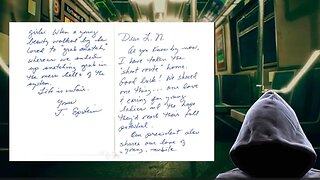 Dear L.N.
As you know by now,
I have taken the
"short route" home.
Good luck! We shared
one thing... our love
& caring for young
ladies and the hope
they'd reach their full
potential.
Our president also
shares our love of
young, nubile
girls. When a young
beauty walked by he
loved to "grab snatch"
whereas we ended
up snatching grub in
the mess halls of the
system.
Life is unfair.
Yours
J. Epstein